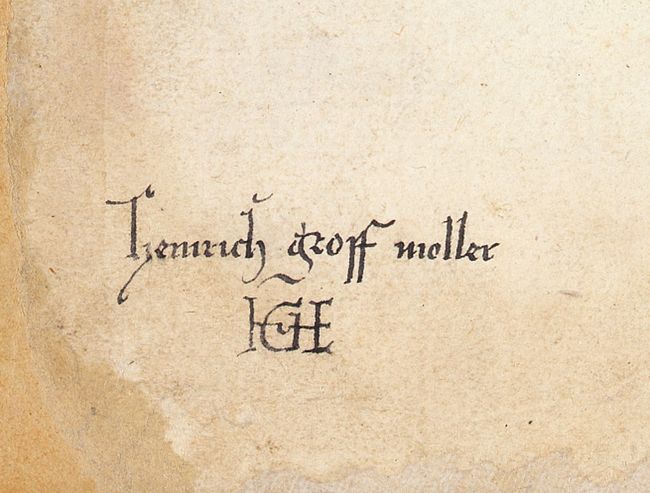 Heinrich groff moller
HGHE